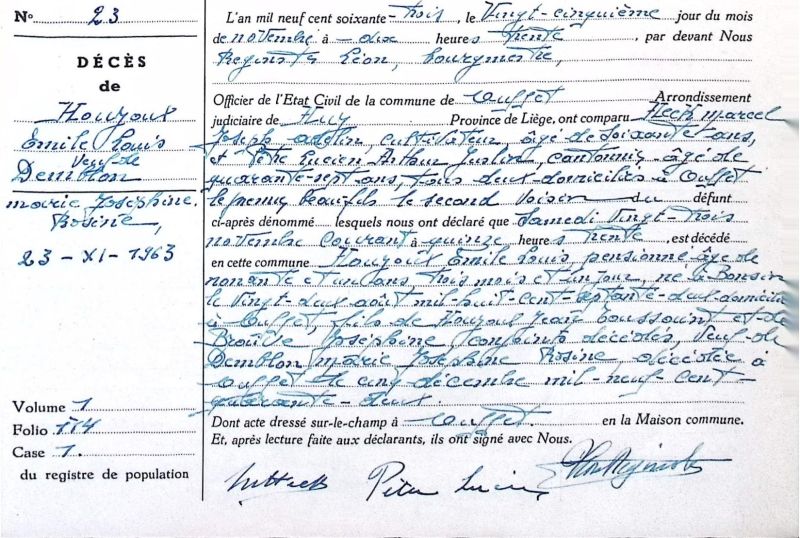 N° 23
DÉCÈS
de
Houyoux
Emile Louis
Veuf de
Demblon
marie Josephine
Rosine,
23 - XI - 1963
Volume 1
Folio 114
Case 1.
du registre de population
L'an mil neuf cent soixante-trois, le Vingt-cinquième jour du mois
de novembre à - dix heures trente, par devant Nous
Reginster Léon, bourgmestre,
Officier de l'Etat Civil de la commune de Ouffet Arrondissement
judiciaire de Huy Province de Liège, ont comparu Heck marcel
Joseph adelin, cultivateur, âgé de soixante ans,
et Lucien Arthur cantonnier âgé de
quarante-sept ans, tous deux domiciliés à Ouffet
le premier beau-fils le second Voisin du défunt
ci-après dénommé lesquels nous ont déclaré que Samedi Vingt-trois
novembre courant à quinze heures trente, est décédé
en cette commune Houyoux Emile Louis, pensionné âgé de
nonante et un ans, trois mois et un jour, né à Bonsin
le Vingt-deux août mil-huit-cent-septante-deux domicilié
à Ouffet, fils de Houyoux Jean Toussaint et de
Josephine conjoints décédés, Veuf de
Demblon marie Josephine Rosine, décédée à
Ouffet le cinq décembre mil-neuf-cent-
quarante-deux.
Dont acte dressé sur-le-champ à Ouffet en la Maison commune.
Et, après lecture faite aux déclarants, ils ont signé avec Nous.
Lucien